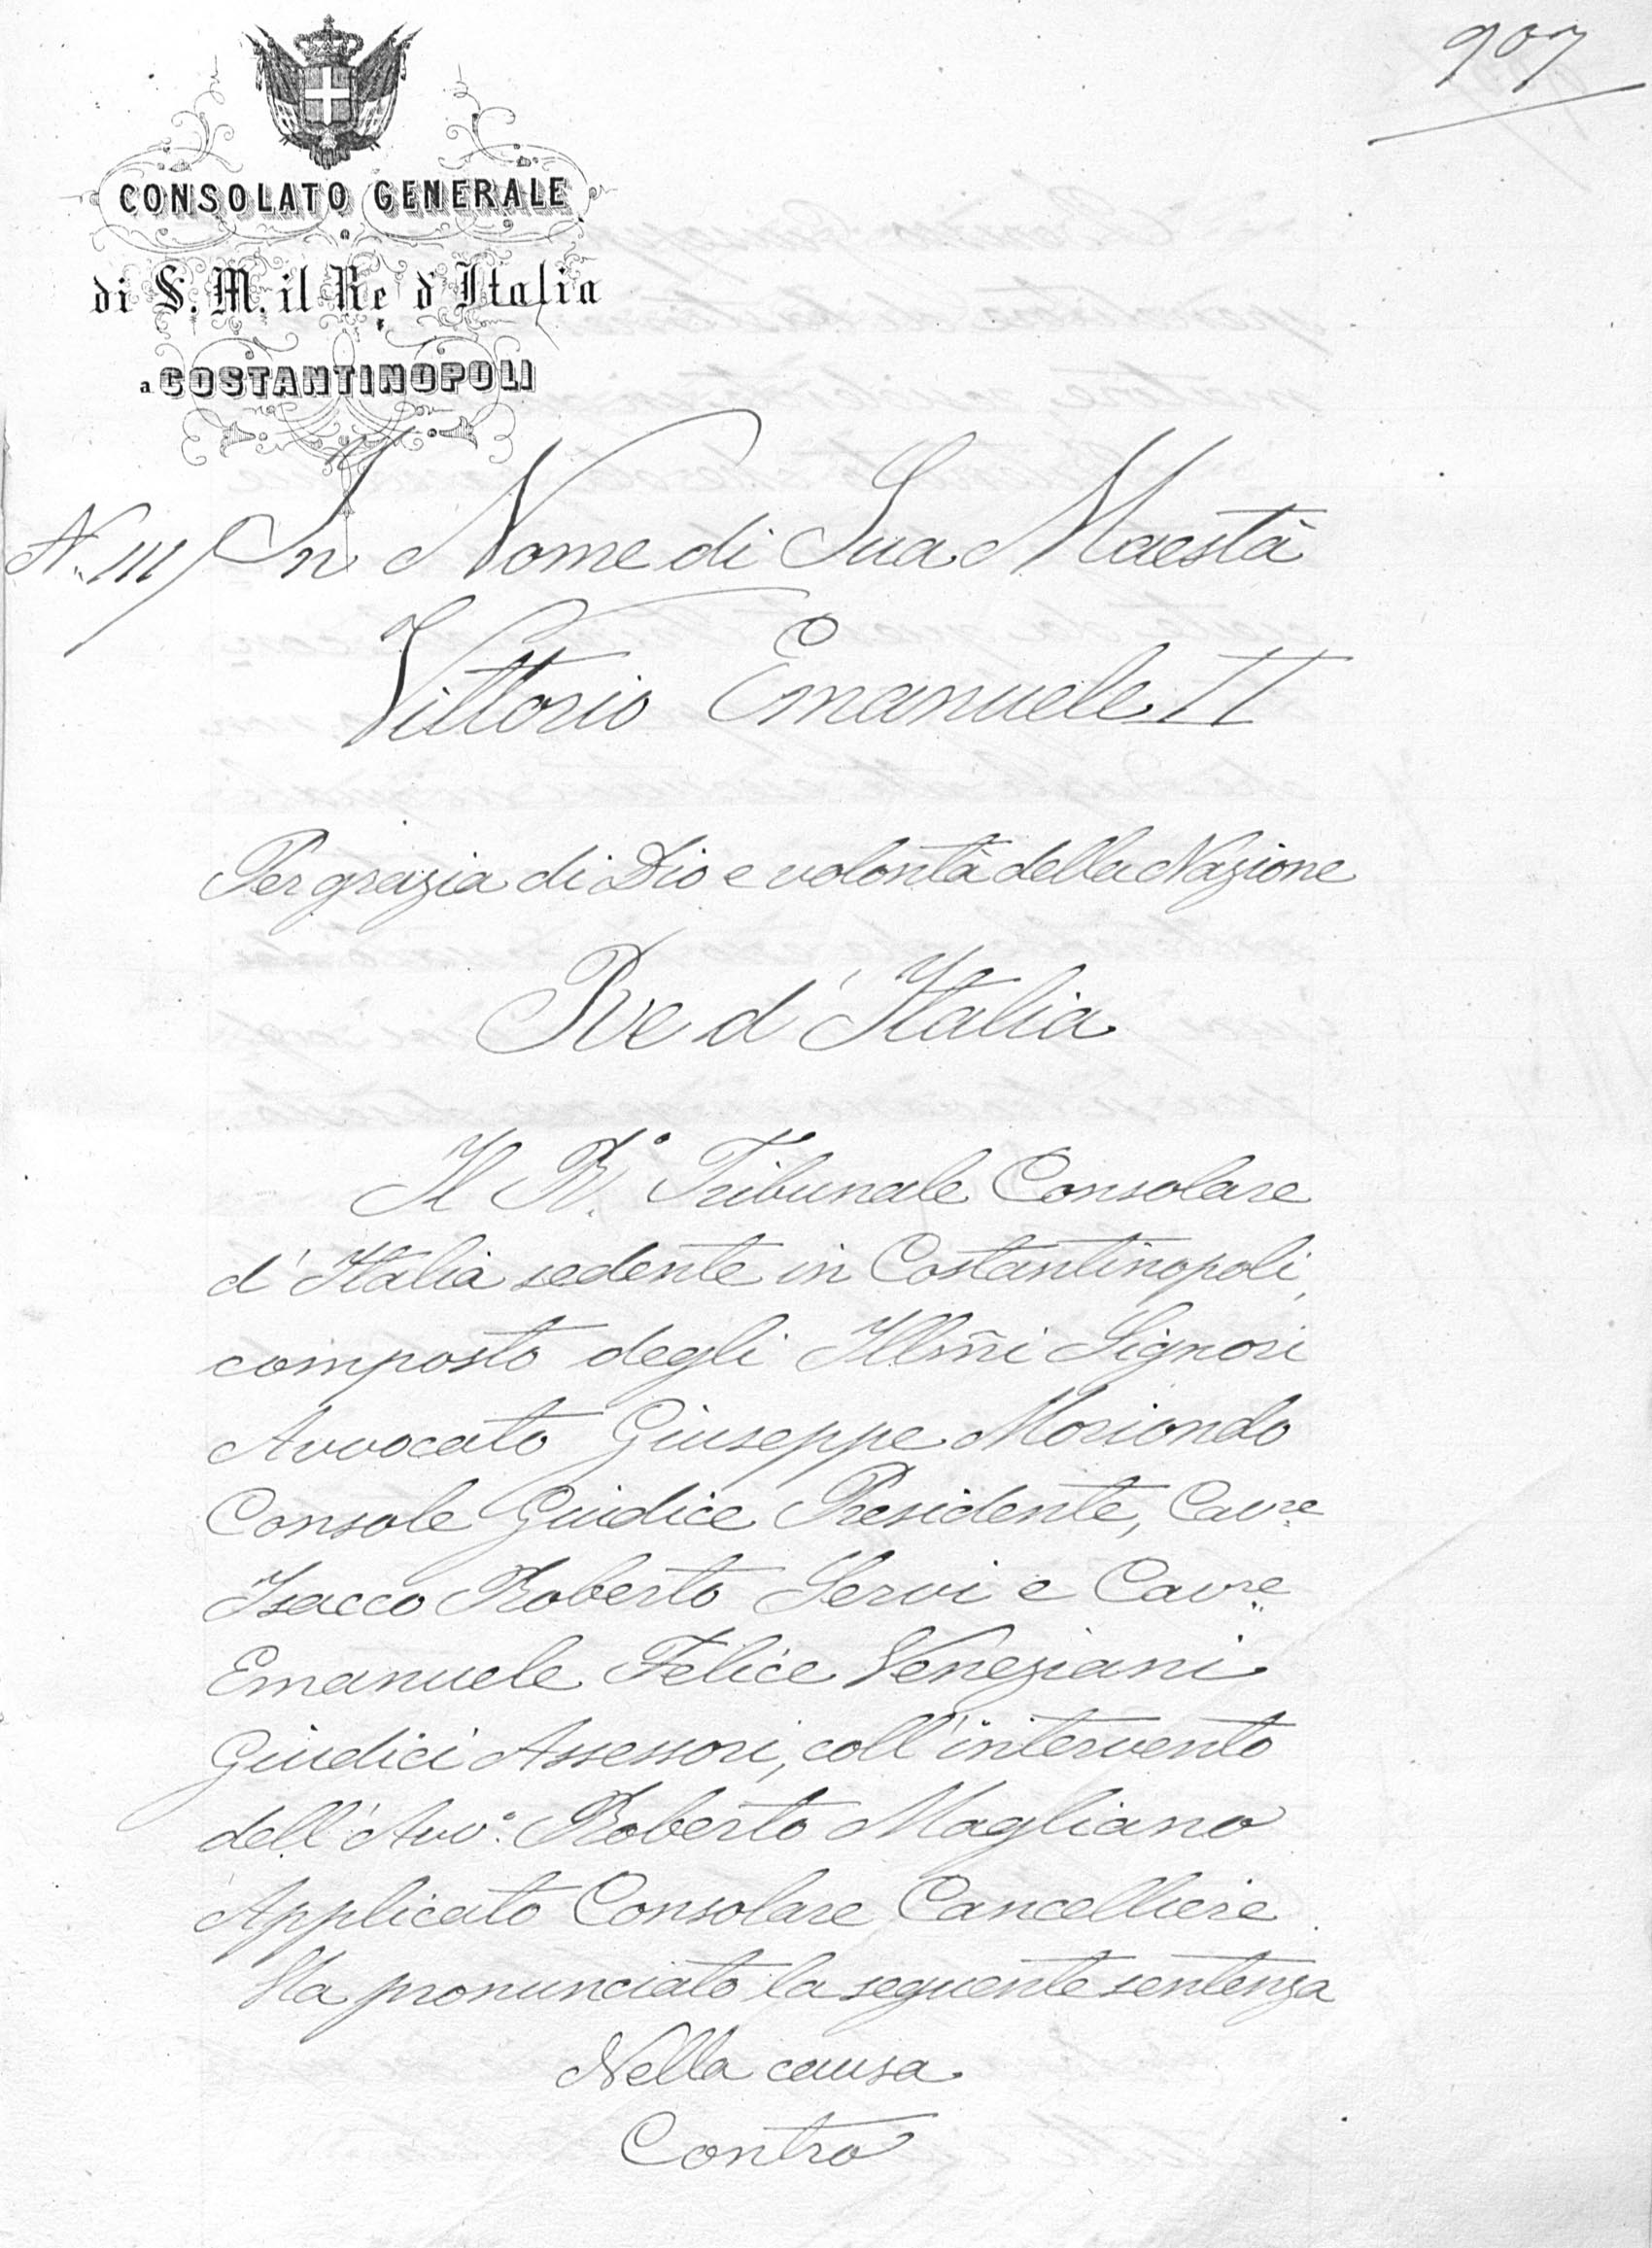 907
CONSOLATO GENERALE
di S. M. il Re d'Italia
a COSTANTINOPOLI
N. 111 In Nome di Sua Maestà
Vittorio Emanuele II
Per grazia di Dio e volontà della Nazione
Re d'Italia
Il R.° Tribunale Consolare
d'Italia sedente in Costantinopoli,
composto degli Illm̃i Signori
Avvocato Giuseppe Moriondo
Console Giudice Presidente, Cavre
Isacco Roberto Servi e Cavre
Emanuele Felice Veneziani
Giudici Assessori, coll'intervento
dell'Avv°. Roberto Magliano
Applicato Consolare Cancelliere
Ha pronunciato la seguente sentenza
Nella causa
Contro